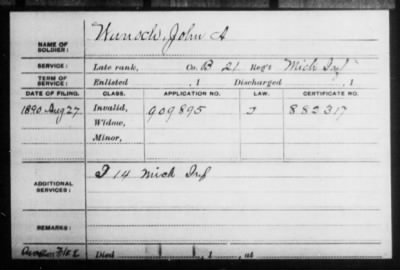 NAME OF SOLDIER: Wunsch, John A
SERVICE: Late rank, Co. B 21 Reg't Mich Inf
TERM OF SERVICE: Enlisted , 1 Discharged , 1
DATE OF FILING. CLASS. APPLICATION NO. LAW. CERTIFICATE NO.
1890 Aug 27. Invalid, 909895 J 882317
Widow,
Minor,
ADDITIONAL SERVICES: J 14 Mich Inf
REMARKS:
Died , 1 , at